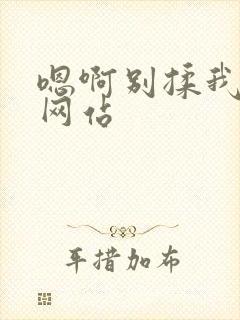 嗯啊别揉我
网佔
车措加布